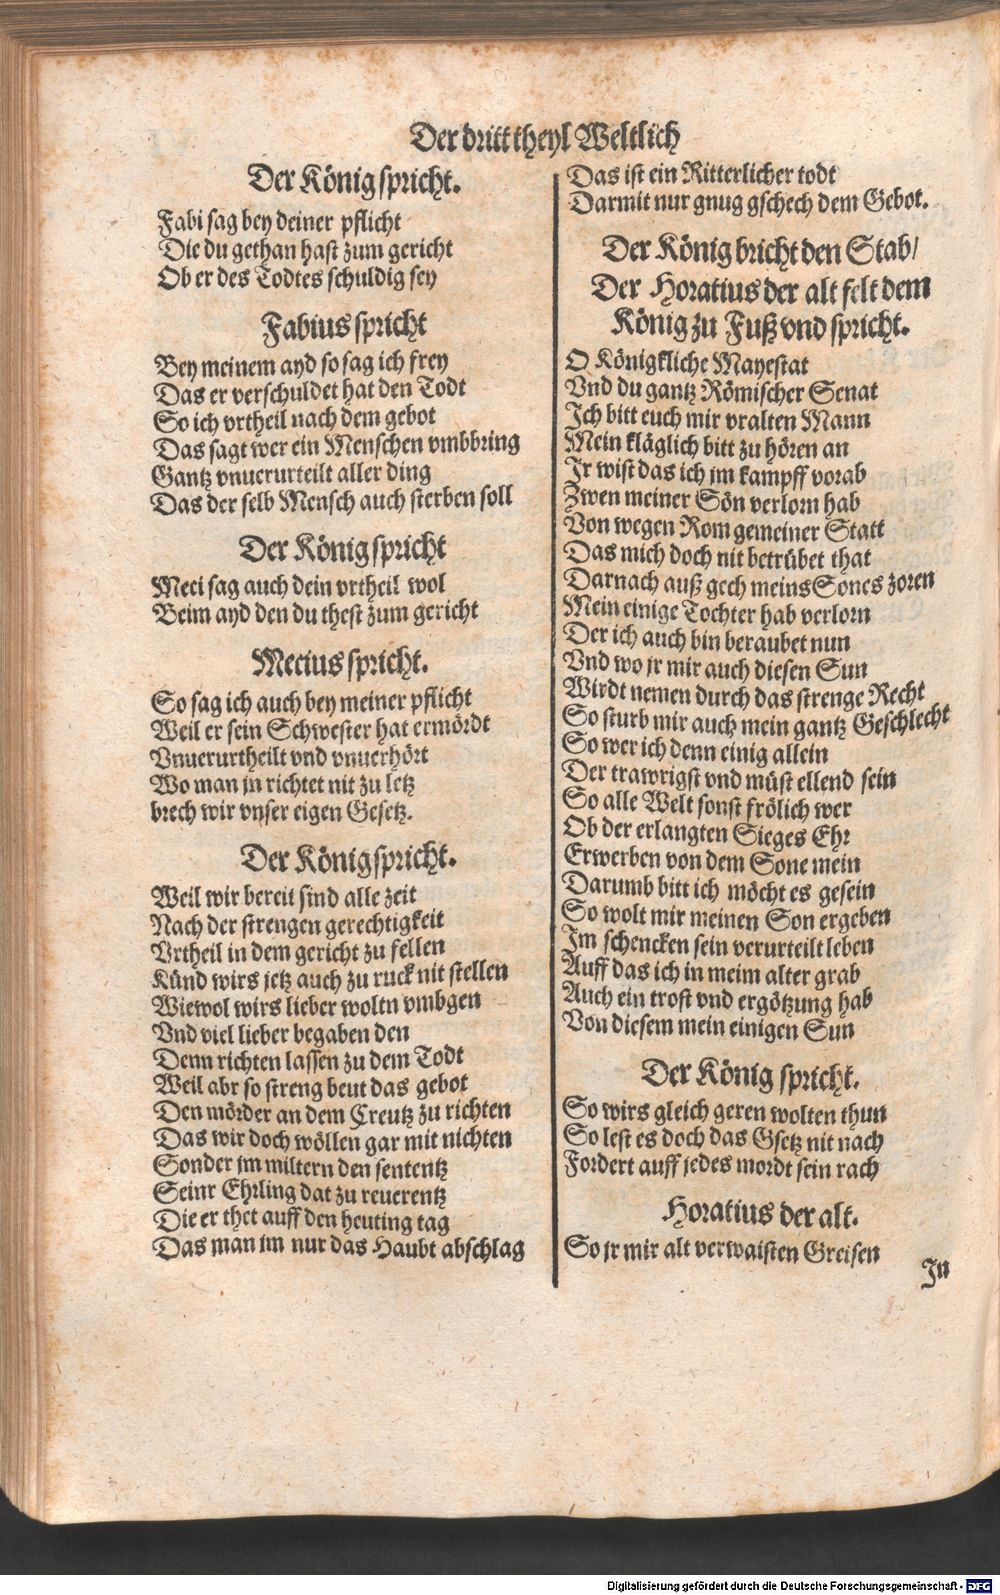 Der dritt theyl Weltlich
Der König spricht.
Fabi sag bey deiner pflicht
Die du gethan hast zum gericht
Ob er des Todtes schuldig sey
Fabius spricht
Bey meinem ayd so sag ich frey
Das er verschuldet hat den Todt
So ich vrtheil nach dem gebot
Das sagt wer ein Menschen vmbbring
Gantz vnuerurteilt aller ding
Das der selb Mensch auch sterben soll
Der König spricht
Meci sag auch dein vrtheil wol
Beim ayd den du thest zum gericht
Mecius spricht.
So sag ich auch bey meiner pflicht
Weil er sein Schwester hat ermördt
Vnuerurtheilt vnd vnuerhört
Wo man jn richtet nit zu letz
brech wir vnser eigen Gesetz.
Der König spricht.
Weil wir bereit sind alle zeit
Nach der strengen gerechtigkeit
Vrtheil in dem gericht zu fellen
Künd wirs jetz auch zu ruck nit stellen
Wiewol wirs lieber woltn vmbgen
Vnd viel lieber begaben den
Denn richten lassen zu dem Todt
Weil abr so streng beut das gebot
Den mörder an dem Creutz zu richten
Das wir doch wöllen gar mit nichten
Sonder jm miltern den sententz
Seinr Ehrling dat zu reuerentz
Die er thet auff den heuting tag
Das man im nur das Haubt abschlag
Das ist ein Ritterlicher todt
Darmit nur gnug gschech dem Gebot.
Der König bricht den Stab/
Der Horatius der alt felt dem
König zu Fuß vnd spricht.
O Königkliche Mayestat
Vnd du gantz Römischer Senat
Ich bitt euch mir vralten Mann
Mein kläglich bitt zu hören an
Ir wist das ich jm kampff vorab
Zwen meiner Sön verlorn hab
Von wegen Rom gemeiner Statt
Das mich doch nit betrübet that
Darnach auß gech meins Sones zoren
Mein einige Tochter hab verlorn
Der ich auch bin beraubet nun
Vnd wo jr mir auch diesen Sun
Wirdt nemen durch das strenge Recht
So sturb mir auch mein gantz Geschlecht
So wer ich denn einig allein
Der trawrigst vnd müst ellend sein
So alle Welt sonst frölich wer
Ob der erlangten Sieges Ehr
Erwerben von dem Sone mein
Darumb bitt ich möcht es gesein
So wolt mir meinen Son ergeben
Im schencken sein verurteilt leben
Auff das ich in meim alter grab
Auch ein trost vnd ergötzung hab
Von diesem mein einigen Sun
Der König spricht.
So wirs gleich geren wolten thun
So lest es doch das Gsetz nit nach
Fordert auff jedes mordt sein rach
Horatius der alt.
So jr mir alt verwaisten Greisen
In
Digitalisierung gefördert durch die Deutsche Forschungsgemeinschaft - DFG